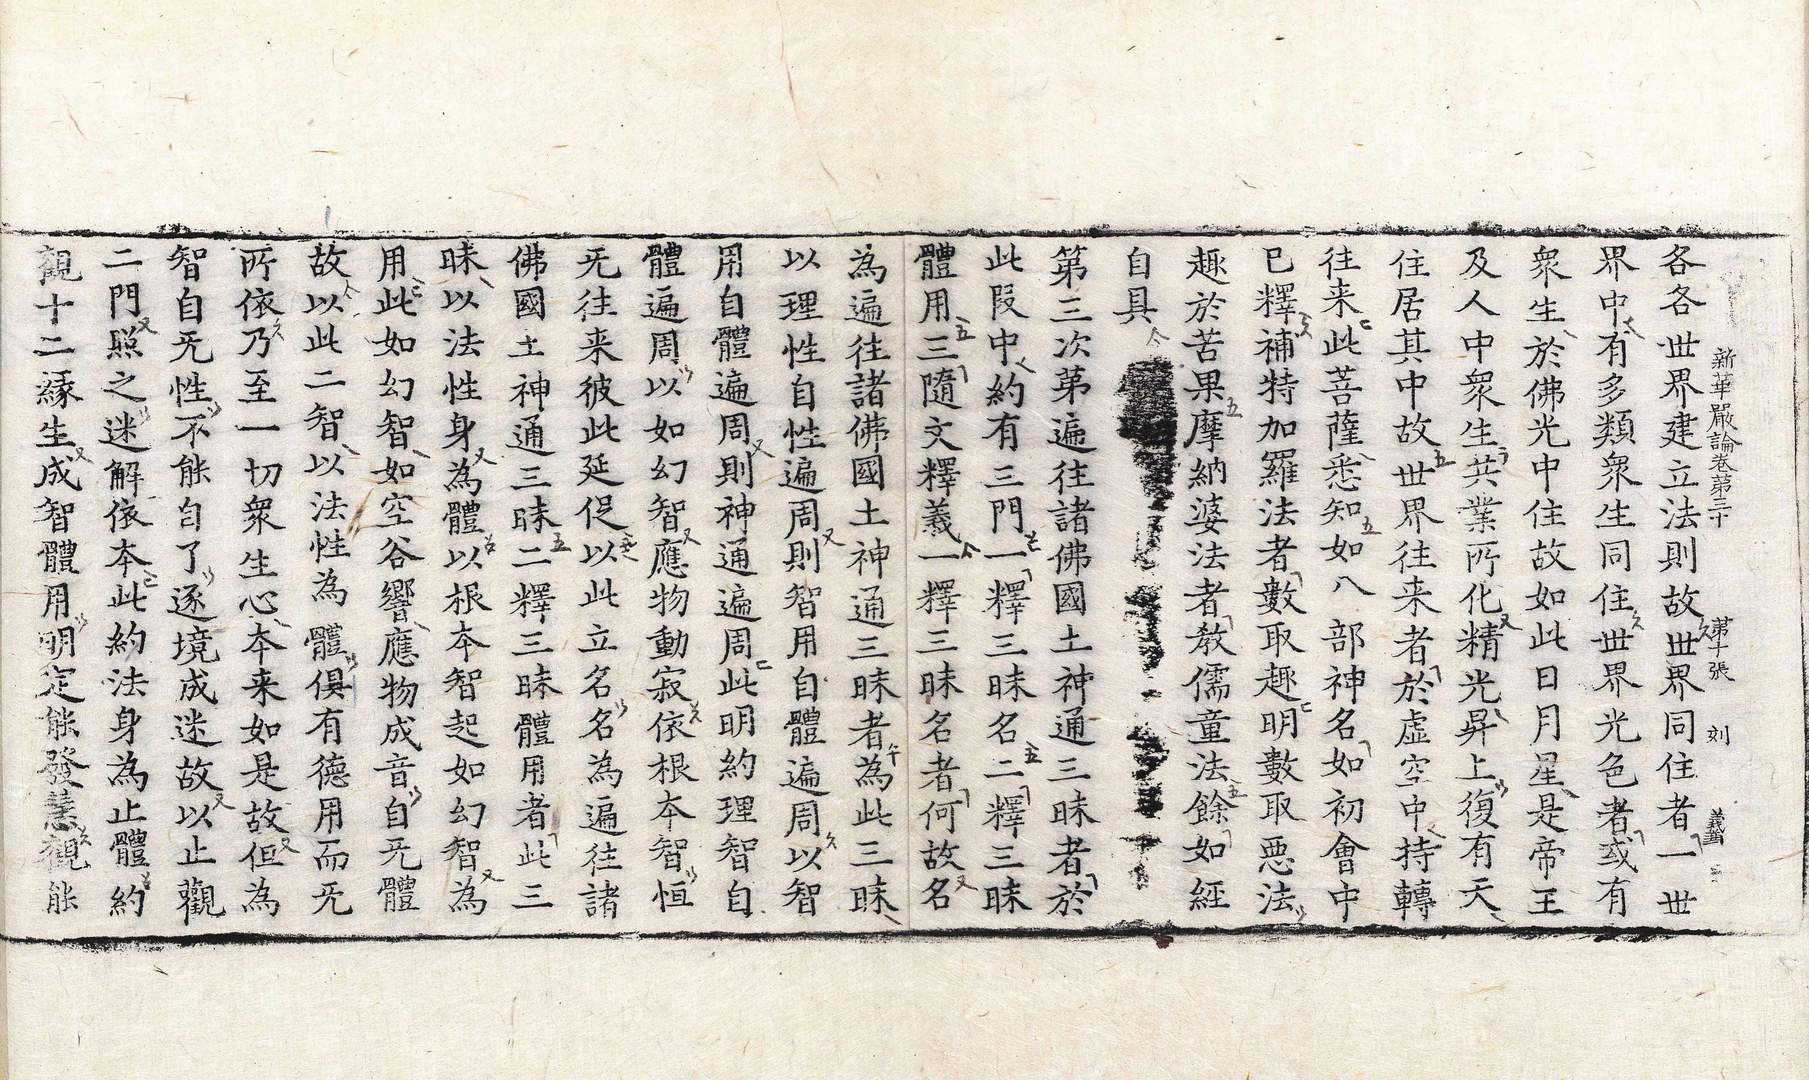 新華嚴論卷第三十 第十張 刘
各各世界建立法則故世界同住者一世
界中有多類衆生同住世界光色者或有
衆生於佛光中住故如此日月星是帝王
及人中衆生共業所化精光昇上復有天
住居其中故世界往来者於虛空中持轉
往来此菩薩悉知如八部神名如初會中
已釋補特加羅法者數取趣明數取惡法
趣於苦果摩納婆法者教儒童法餘如經
自具
第三次苐遍往諸佛國土神通三昧者於
此段中約有三門一釋三昧名二釋三昧
體用三隨文釋義一釋三昧名者何故名
為遍往諸佛國土神通三昧者為此三昧
以理性自性遍周則智用自體遍周以智
用自體遍周則神通遍周此明約理智自
體遍周以如幻智應物動寂依根本智恒
无往来彼此延促以此立名名為遍往諸
佛國土神通三昧二釋三昧體用者此三
昧以法性身為體以根夲智起如幻智為
用此如幻智如空谷響應物成音自无體
故以此二智以法性為體俱有德用而无
所依乃至一切衆生心夲来如是故但為
智自无性不能自了逐境成迷故以止觀
二門照之迷解依夲此約法身為止體約
觀十二緣生成智體用明定能發慧觀能